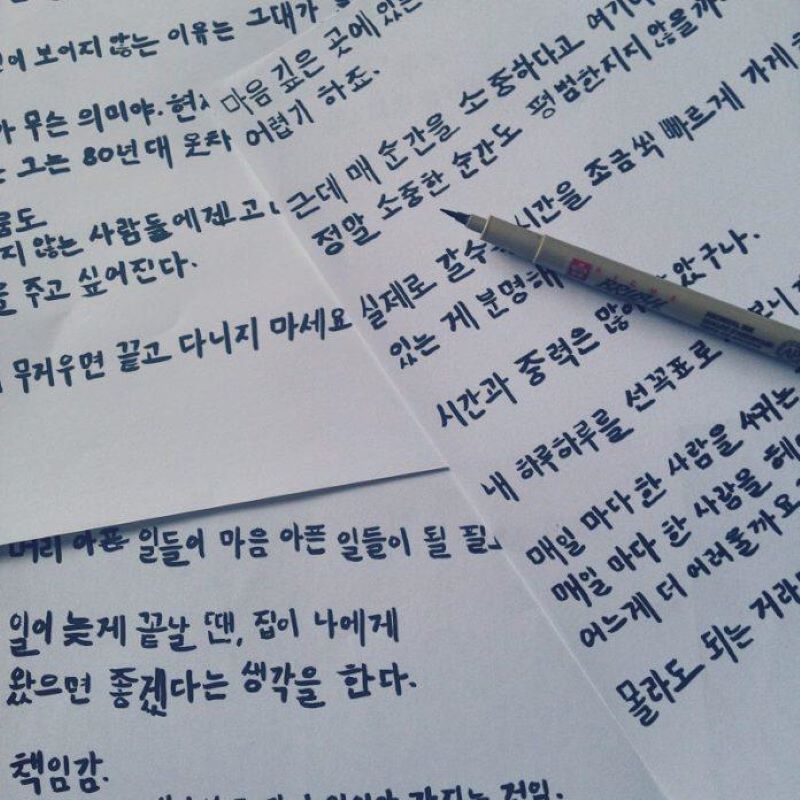 보이지 않는 이유는 그대가
무슨 의미야.
그는 80년대 옷차
지 않는 사람들에겐 고
주고 싶어진다.
무거우면 끌고 다니지 마세요
마음 깊은 곳에 있는
어렵기 하죠.
근데 매 순간을 소중하다고 여기
정말 소중한 순간도 평범한지지 않을까
실제로 갈수 시간을 조금씩 빠르게 가게
있는 게 분명해 았구나.
시간과 중력은 많
내 하루하루를 선꼭표로 보니
매일 마다 한 사람을 사귀는
매일 마다 한 사람을 헤
어느게 더 어려울까요
몰라도 되는 거라
머리 아픈 일들이 마음 아픈 일들이 될 필
일이 늦게 끝날 땐, 집이 나에게
왔으면 좋겠다는 생각을 한다.
책임감.
가지는 것임.
SAKURA
PIGMA